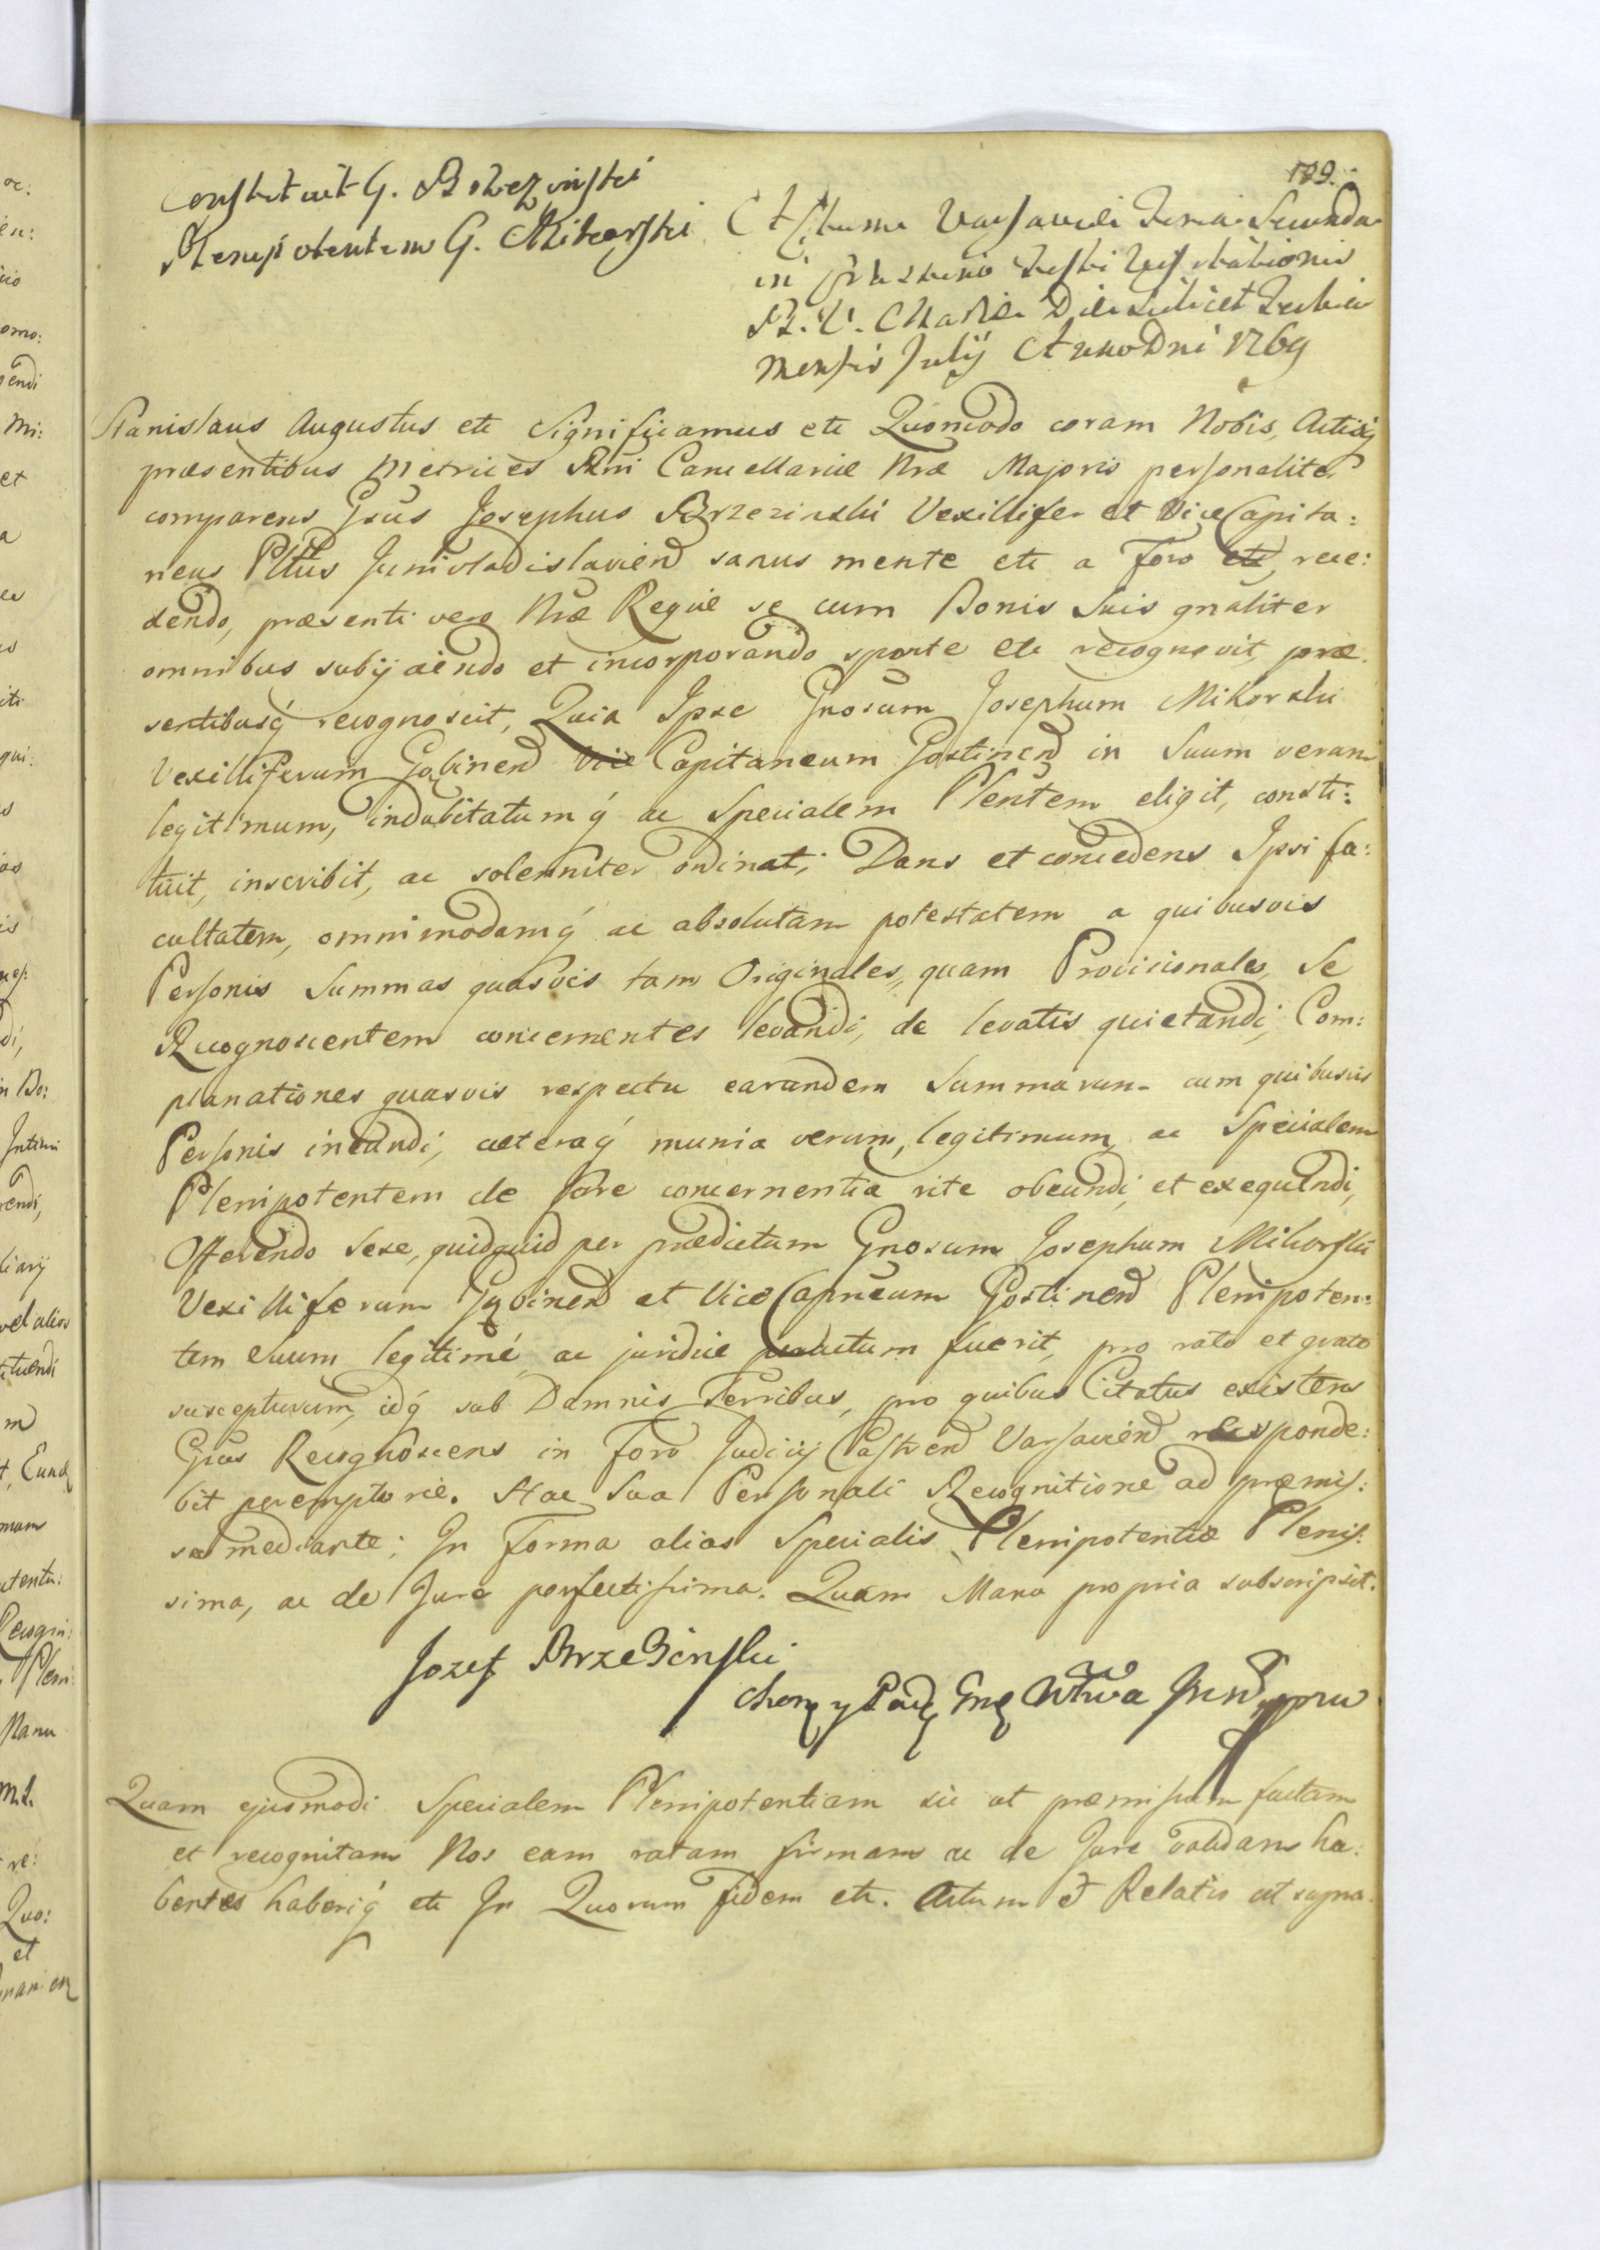 189.
Constituit G. Brzezinski
Plenipotentem G. Mikorski
Actum Varsaviæ Feria Secunda
in Crastino Festi Visitationis
B. V. Mariæ Die scilicet Tertia
Mensis Julÿ Anno Dni 1769
Stanislaus Augustus etc Significamus etc Quomodo coram Nobis, Actisq́
præsentibus Metrices Rni Cancellariæ Nræ Majoris personaliter
comparens Gsus Josephus Brzezinski Vexillifer et ViceCapita:
neus Pttus Junivladislavien sanus mente etc a Foro etc, rece:
dendo, præsenti vero Nræ Regiæ se cum Bonis Suis gnaliter
omnibus subÿciendo et incorporando sponte etc recognovit præ
sentibusq́ recognoscit, Quia Ipse Gnosum Josephum Mikorski
Vexilliferum Gąbinen Vice Capitaneum Gostinen in Suum verum
legitimum, indubitatumq́ ac Specialem Plentem eligit, consti:
tuit, inscribit, ac solenniter ordinat; Dans et concedens Ipsi fa:
cultatem, omnimodamq́ ac absolutam potestatem a quibusvis
Personis Summas quasvis tam Originales, quam Provisionales, Se
Recognoscentem concernentes levandi, de levatis quietandi, Com:
planationes quasvis respectu earundem Summarum cum quibusvis
Personis ineundi, cæteraq́ munia verum, legitimum, ac Specialem
Plenipotentem de Jure concernentia rite obeundi, et exequendi,
Offerendo Sese, quidquid per prædictum Gnosum Josephum Mikorski
Vexilliferum Gąbinen et ViceCapneum Gostinen Plenipoten:
tem Suum legitimé, ac juridice peractum fuerit, pro rato et grato
suscepturum, idq́ sub Damnis Terribus, pro quibus Citatus existens
Gsus Recognoscens in Foro Judicÿ Castren Varsavien responde:
bit peremptorie. Hac Sua Personali Recognitione ad præmis:
sa mediante; In Forma alias Specialis Plenipotentiæ Plenis:
sima, ac de Jure perfectissima. Quam Manu propria subscripsit.
Jozef Brzezinski
Chorą y Podą Gnę Wtwa Inw mpru
Quam ejusmodi Specialem Plenipotentiam sic ut præmissum factam
et recognitam Nos eam ratam firmam ac de Jure validam ha:
bentes haberiq́ etc In Quorum Fidem etc. Actum et Relatio ut supra.